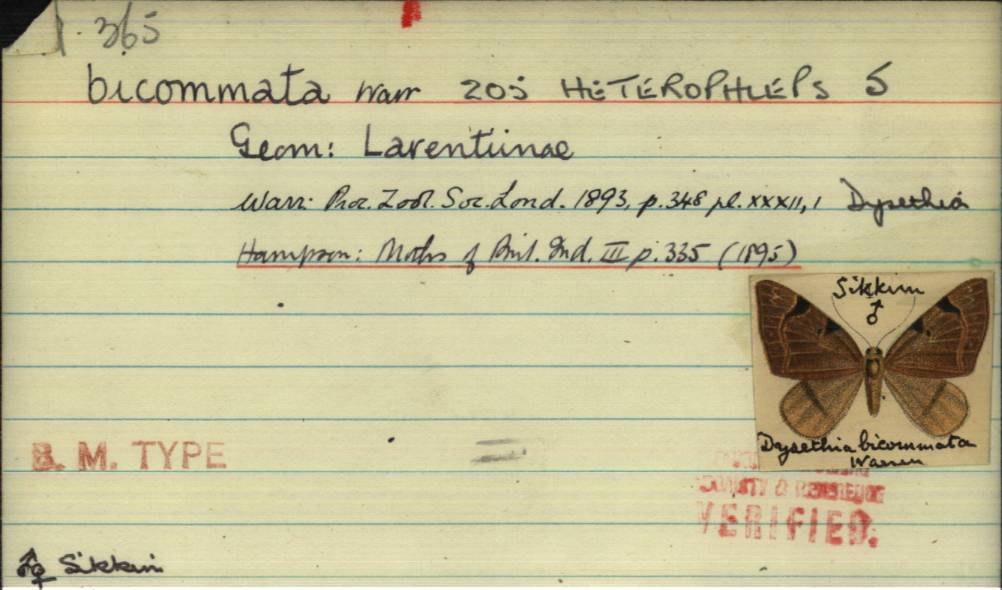 365
bicommata Warr 205 HETEROPHLEPS 5
Geom: Larentiinae
Warr: Proc. Zool. Soc. Lond. 1893, p. 348 pl. XXXII, 1 Dysethia
Hampson: Moths of Brit. Ind. III p. 335 (1895)
Sikkim
♂
Dysethia bicommata
Warren
B. M. TYPE
& REFERENCE
VERIFIED.
♂♀ Sikkim